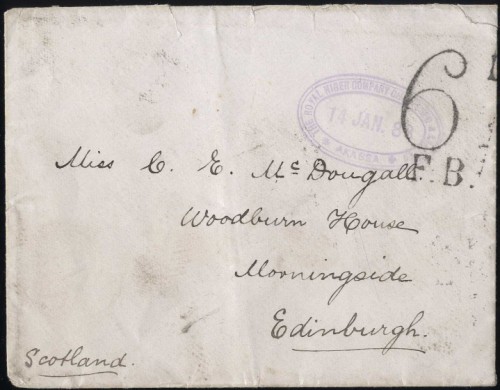 THE ROYAL NIGER COMPANY
14 JAN. 8
AKASSA
6
F.B.
Miss C. E. McDougall.
Woodburn House
Morningside
Edinburgh.
Scotland.